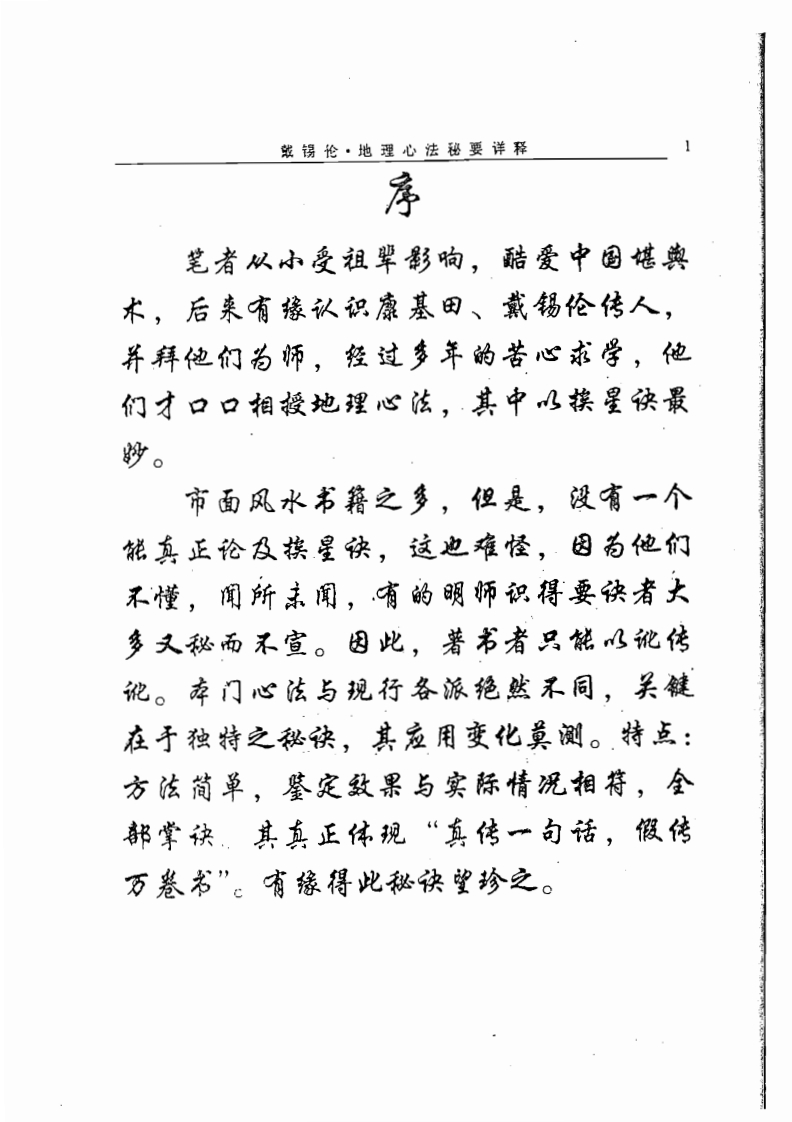 戴锡伦·地理心法秘要详释 1
序
笔者从小受祖辈影响，酷爱中国堪舆
术，后来有缘认识康基田、戴锡伦传人，
并拜他们为师，经过多年的苦心求学，他
们才口口相授地理心法，其中以挨星诀最
妙。
市面风水书籍之多，但是，没有一个
能真正论及挨星诀，这也难怪，因为他们
不懂，闻所未闻，有的明师识得要诀者大
多又秘而不宣。因此，著书者只能以讹传
讹。本门心法与现行各派绝然不同，关键
在于独特之秘诀，其应用变化莫测。特点：
方法简单，鉴定效果与实际情况相符，全
部掌诀 其真正体现“真传一句话，假传
万卷书”。有缘得此秘诀望珍之。